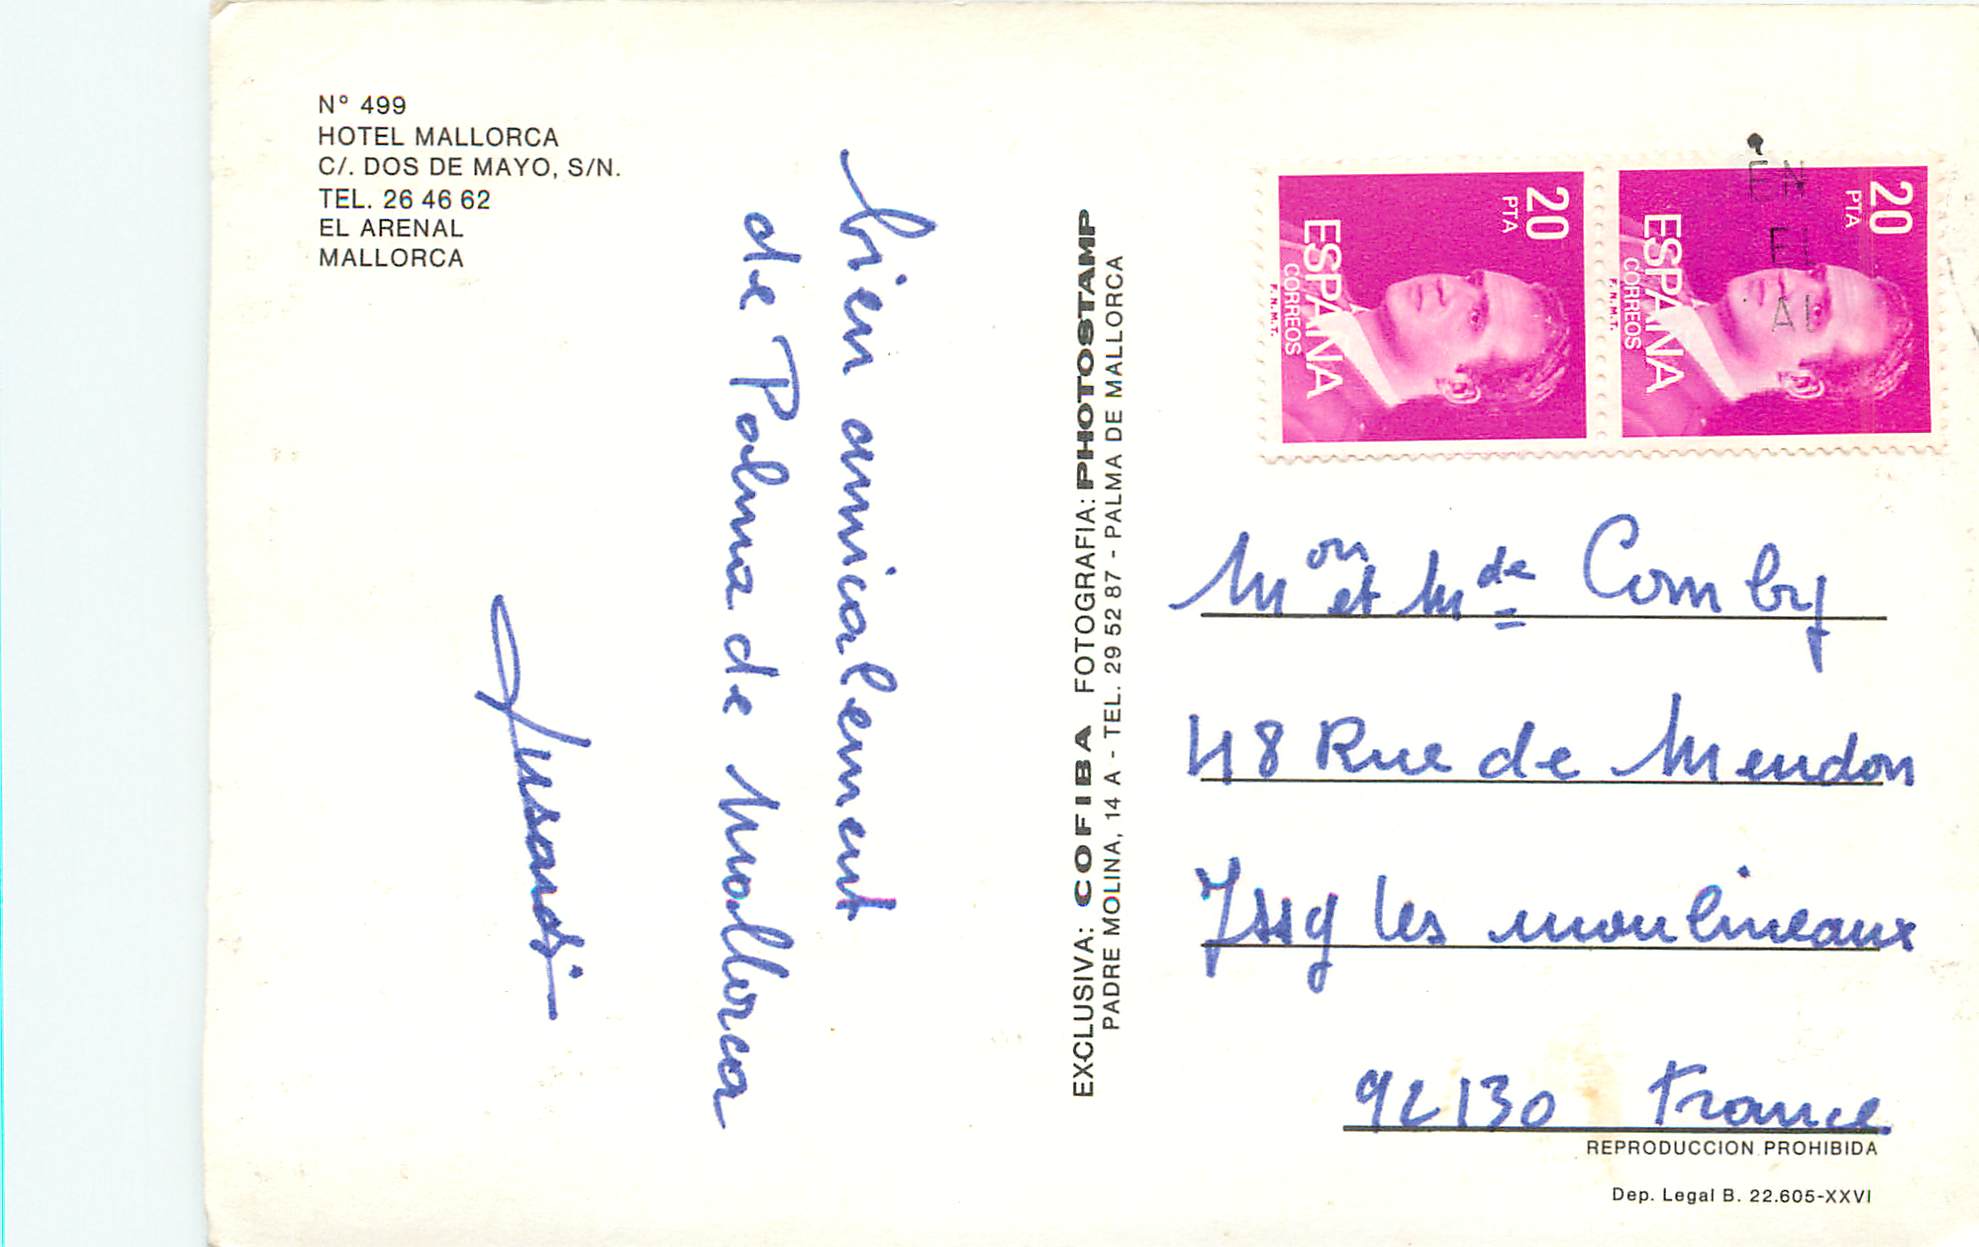 N° 499
HOTEL MALLORCA
C/. DOS DE MAYO, S/N.
TEL. 26 46 62
EL ARENAL
MALLORCA
bien amicalement
de Palma de Mallorca
EXCLUSIVA: COFIBA FOTOGRAFIA: PHOTOSTAMP
PADRE MOLINA, 14 A - TEL. 29 52 87 - PALMA DE MALLORCA
20
PTA
ESPAÑA
CORREOS
F.N.M.T.
20
PTA
ESPAÑA
CORREOS
F.N.M.T.
Mon et Mde Comby
48 Rue de Meudon
Issy les moulineaux
92130 France
REPRODUCCION PROHIBIDA
Dep. Legal B. 22.605-XXVI